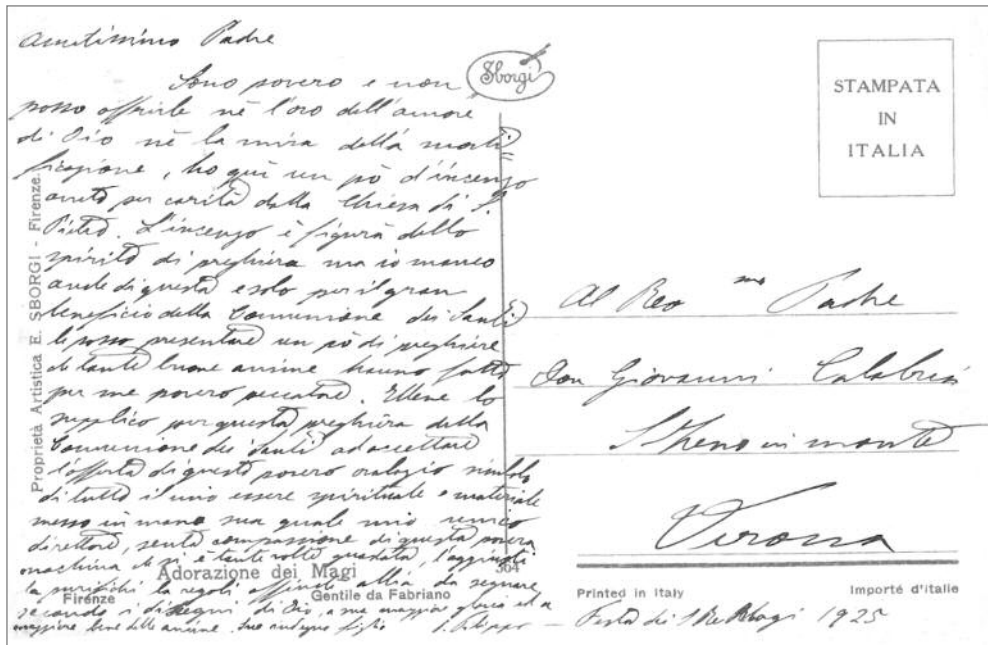 Amatissimo Padre
Sono povero e non
posso offrirle nè l'oro dell'amore
di Dio nè la mirra della morti=
ficazione, ho qui un pò d'incenso
avuto per carità dalla Chiesa di S.
Pietro. L'incenso è figura dello
spirito di preghiera ma io manco
anche di questo e solo per il gran
beneficio della Comunione dei Santi
le posso presentare un pò di preghiere
che tante buone anime hanno fatto
per me povero peccatore. Ebbene lo
supplico per questa preghiera della
Comunione dei Santi ad accettare
l'offerta di questo povero orologio simbolo
di tutto il mio essere spirituale e materiale
messo in mano sua quale mio unico
direttore, senta compassione di questa povera
macchina che si è tante volte guastata, l'aggiusti
la purifichi la regoli affinchè abbia da segnare
secondo i disegni di Dio, a sua maggior gloria ed a
maggiore bene delle anime. Suo indegno figlio
Sborgi
STAMPATA
IN
ITALIA
Proprietà Artistica E. SBORGI - Firenze.
Al Rev mo Padre
Don Giovanni Calabria
S Zeno in monte
Verona
Adorazione dei Magi
364
Firenze
Gentile da Fabriano
Printed in Italy
Importé d'italie
Festa dei S Re Magi 1925